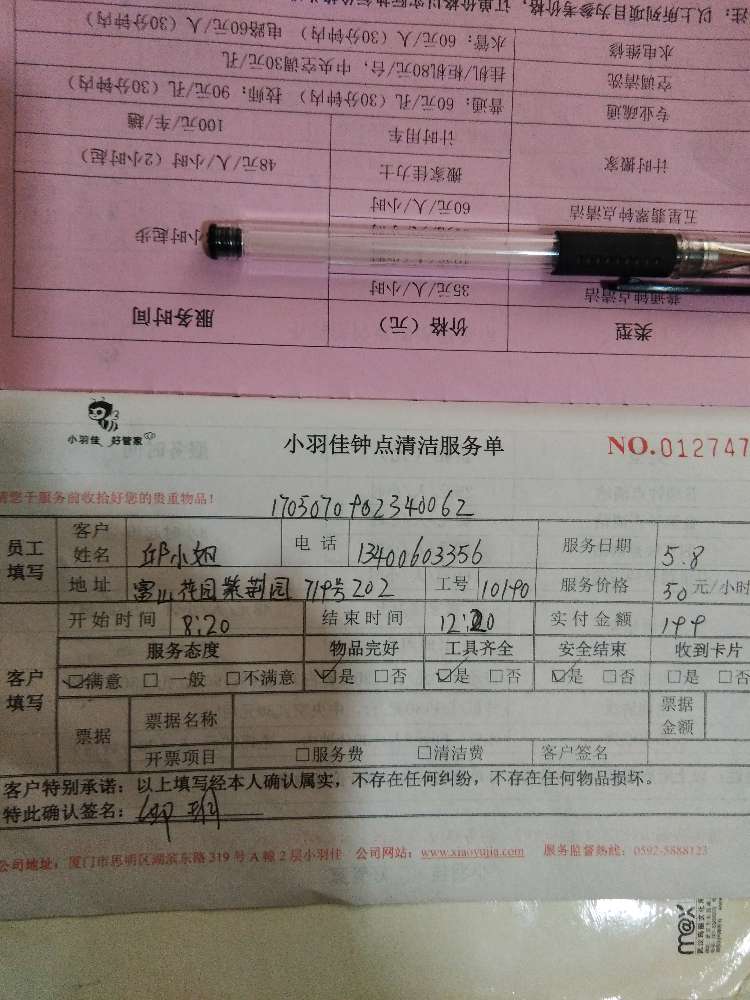 注：以上所列项目为参考价格，订单价格以实际执行价
水电维修 水管：60元/人（30分钟内） 电路60元/人（30分钟内）
空调清洗 挂机/柜机80元/台，中央空调30元/孔
专业疏通 普通：60元/孔（30分钟内） 技师：90元/孔（30分钟内）
计时用车 100元/车/趟
计时搬家 搬家佳力士 48元/人/小时（2小时起）
五星翡翠钟点清洁 60元/人/小时
小时起步
普通钟点清洁 35元/人/小时
类型 价格（元） 服务时间
小羽佳 好管家
小羽佳钟点清洁服务单 NO.012747
请您于服务前收拾好您的贵重物品！
员工填写 客户姓名 邱小姐 电话 13400603356 服务日期 5.8
地址 富山花园紫荆园 719号202 工号 10190 服务价格 50元/小时
开始时间 8:20 结束时间 12:20 实付金额 199
客户填写 服务态度 物品完好 工具齐全 安全结束 收到卡片
☑满意 □一般 □不满意 ☑是 □否 ☑是 □否 ☑是 □否 □是 □否
票据 票据名称 票据金额
开票项目 □服务费 □清洁费 客户签名
客户特别承诺：以上填写经本人确认属实，不存在任何纠纷，不存在任何物品损坏。
特此确认签名：
公司地址：厦门市思明区湖滨东路319号A幢2层小羽佳 公司网站：www.xiaoyujia.com 服务监督热线：0592-5888123
m@x